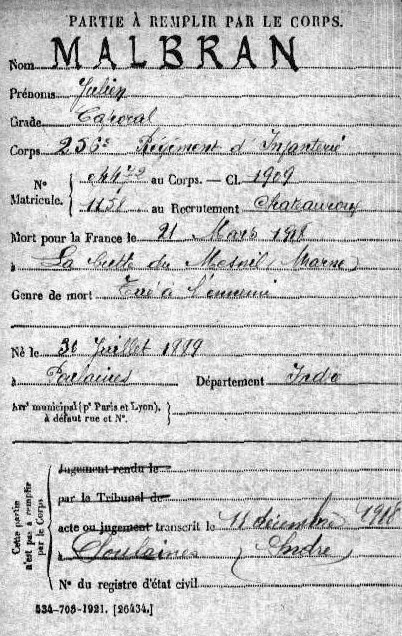 PARTIE À REMPLIR PAR LE CORPS.
Nom MALBRAN
Prénoms Julien
Grade Caporal
Corps 256e Régiment d'Infanterie
N° Matricule. au Corps. — Cl. 1909
1158 au Recrutement Chateauroux
Mort pour la France le 21 Mars 1918
à La butte du Mesnil (Marne)
Genre de mort Tué à l'ennemi
Né le 30 Juillet 1889
à Poulaines Département Indre
Arrt municipal (pr Paris et Lyon), à défaut rue et N°.
Cette partie n'est pas à remplir par le Corps
Jugement rendu le
par le Tribunal de
acte ou jugement transcrit le 11 décembre 1918
à Poulaines (Indre)
N° du registre d'état civil
534-708-1921. [26434.]